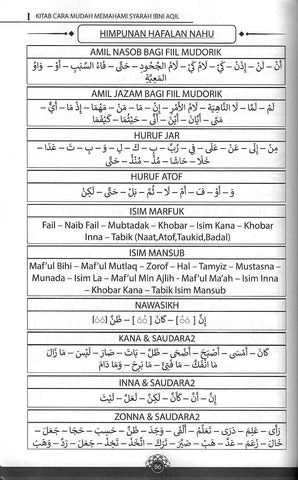 KITAB CARA MUDAH MEMAHAMI SYARAH IBNI AQIL
HIMPUNAN HAFALAN NAHU
AMIL NASOB BAGI FIIL MUDORIK
أَنْ – لَنْ – إِذَنْ – كَيْ – لَامُ كَيْ – لَامُ الْجُحُودِ – حَتَّى – فَاءُ السَّبَبِ – أَوْ – وَاوُ
الْمَعِيَّةِ
AMIL JAZAM BAGI FIIL MUDORIK
لَمْ – لَمَّا – لَا النَّاهِيَة – لَامُ الْأَمْرِ – إِنْ – مَا – مَنْ – مَهْمَا – إِذْ مَا – أَيُّ –
مَتَى – أَيَّانَ – أَيْنَ – أَنَّى – حَيْثُمَا – كَيْفَمَا
HURUF JAR
مِنْ – إِلَى – عَنْ – عَلَى – فِي – رُبَّ – بِ – كَ – لِ – وَ – تَ – حَتَّى – عَدَا –
خَلَا – حَاشَا – مُذْ – مُنْذُ – حَتَّى
HURUF ATOF
وَ – أَوْ – فَ – أَمْ – لَا – ثُمَّ – بَلْ – حَتَّى – لَكِنْ
ISIM MARFUK
Fail – Naib Fail – Mubtadak – Khobar – Isim Kana – Khobar
Inna – Tabik (Naat,Atof,Taukid,Badal)
ISIM MANSUB
Maf'ul Bihi – Maf'ul Mutlaq – Zorof – Hal – Tamyiz – Mustasna –
Munada – Isim La – Maf'ul Min Ajlih - Maf'ul Ma'ah – Isim Inna
– Khobar Kana – Tabik Isim Mansub
NAWASIKH
إِنَّ – كَانَ – ظَنَّ
KANA & SAUDARA2
كَانَ – أَمْسَى – أَصْبَحَ – أَضْحَى – ظَلَّ – بَاتَ – صَارَ – لَيْسَ – مَا زَالَ
مَا انْفَكَّ – مَا فَتِئَ – مَا بَرِحَ – وَمَا دَامَ
INNA & SAUDARA2
إِنَّ – أَنَّ – كَأَنَّ – لَكِنَّ – لَعَلَّ – لَيْتَ
ZONNA & SAUDARA2
رَأَى – عَلِمَ – دَرَى – تَعَلَّمْ – أَلْفَى – وَجَدَ – ظَنَّ – حَسِبَ – حَجَا – جَعَلَ –
خَالَ – زَعَمَ – عَدَّ – هَبْ – صَيَّرَ – تَرَكَ – اتَّخَذَ – تَخِذَ – جَعَلَ – رَدَّ – وَهَبَ
86